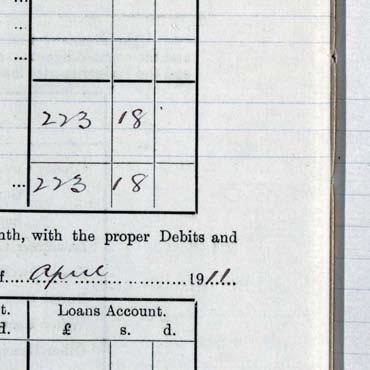 ...
...
223 18
... 223 18
nth, with the proper Debits and
f ........ April ........ ........ 1911....
t. Loans Account.
d. £ s. d.